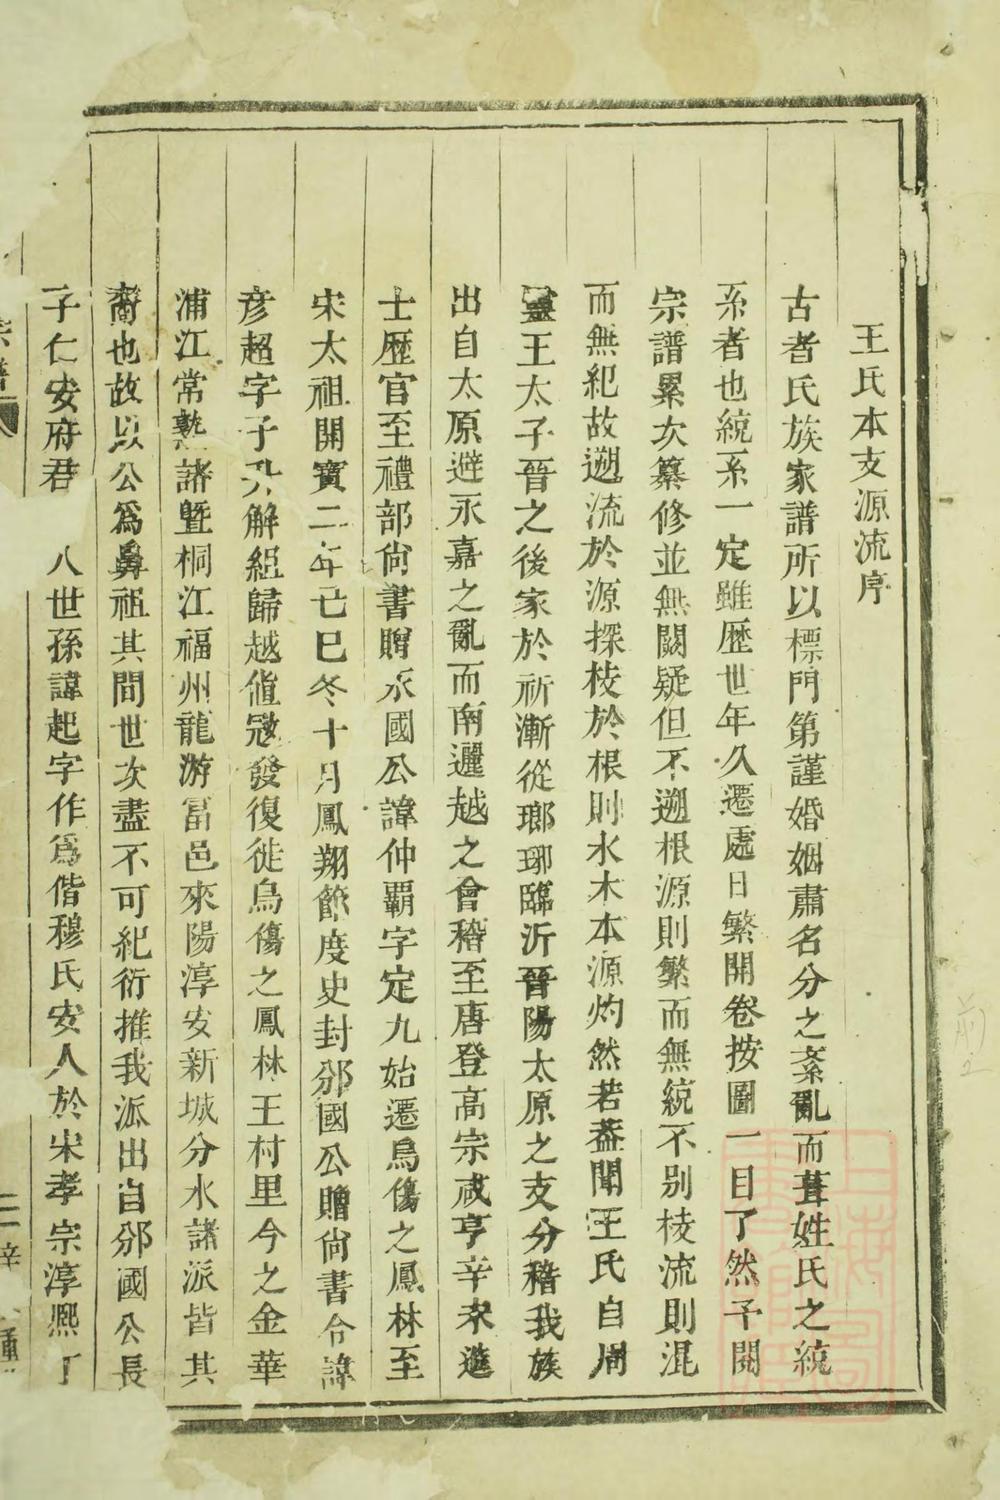 王氏本支源流序
古者氏族家譜所以標門第謹婚姻肅名分之紊亂而葺姓氏之統
系者也統系一定雖歷世年久遷處日繁開卷按圖一目了然予閱
宗譜累次纂修並無闕疑但不遡根源則繁而無統不别枝流則混
而無紀故遡流於源探枝於根則水木本源灼然若葢聞王氏自周
靈王太子晉之後家於祈漸從瑯琊臨沂晉陽太原之支分稽我族
出自太原避永嘉之亂而南遷越之會稽至唐登高宗咸亨辛未進
士歷官至禮部尙書贈永國公諱仲覇字定九始遷烏傷之鳳林至
宋太祖開寳二年已巳冬十月鳳翔節度史封邠國公贈尙書令諱
彦超字子升解組歸越值寇發復徙烏傷之鳳林王村里今之金華
浦江常熟諸曁桐江福州龍游富邑來陽淳安新城分水諸派皆其
裔也故以公爲鼻祖其間世次盡不可紀衍推我派出自邠國公長
子仁安府君 八世孫諱起字作爲偕穆氏安人於宋孝宗淳熙丁
宗譜